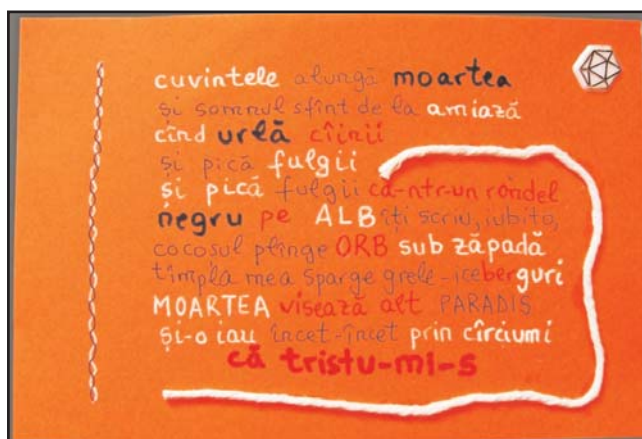 cuvintele alungă moartea
și somnul sfînt de la amiază
cînd urlă cîinii
și pică fulgii
și pică fulgii ca-ntr-un rondel
negru pe ALB îți scriu, iubito,
cocoșul plînge ORB sub zăpadă
tîmpla mea sparge grele-iceberguri
MOARTEA visează alt PARADIS
și-o iau încet-încet prin cîrciumi
că tristu-mi-s